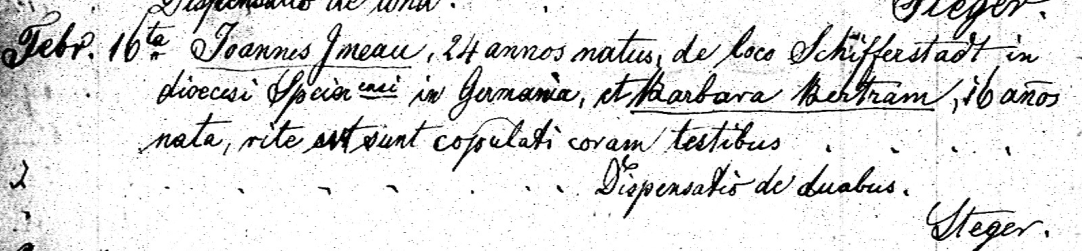 Dispensatio de una.
Steger.
Febr. 16ta Joannes Imeau, 24 annos natus, de loco Schifferstadt in
dioecesi Speierensi in Germania, et Barbara Bertram, 16 años
nata, rite sunt copulati coram testibus . . . .
2 . . . . . . . Dispensatio de duabus.
Steger.